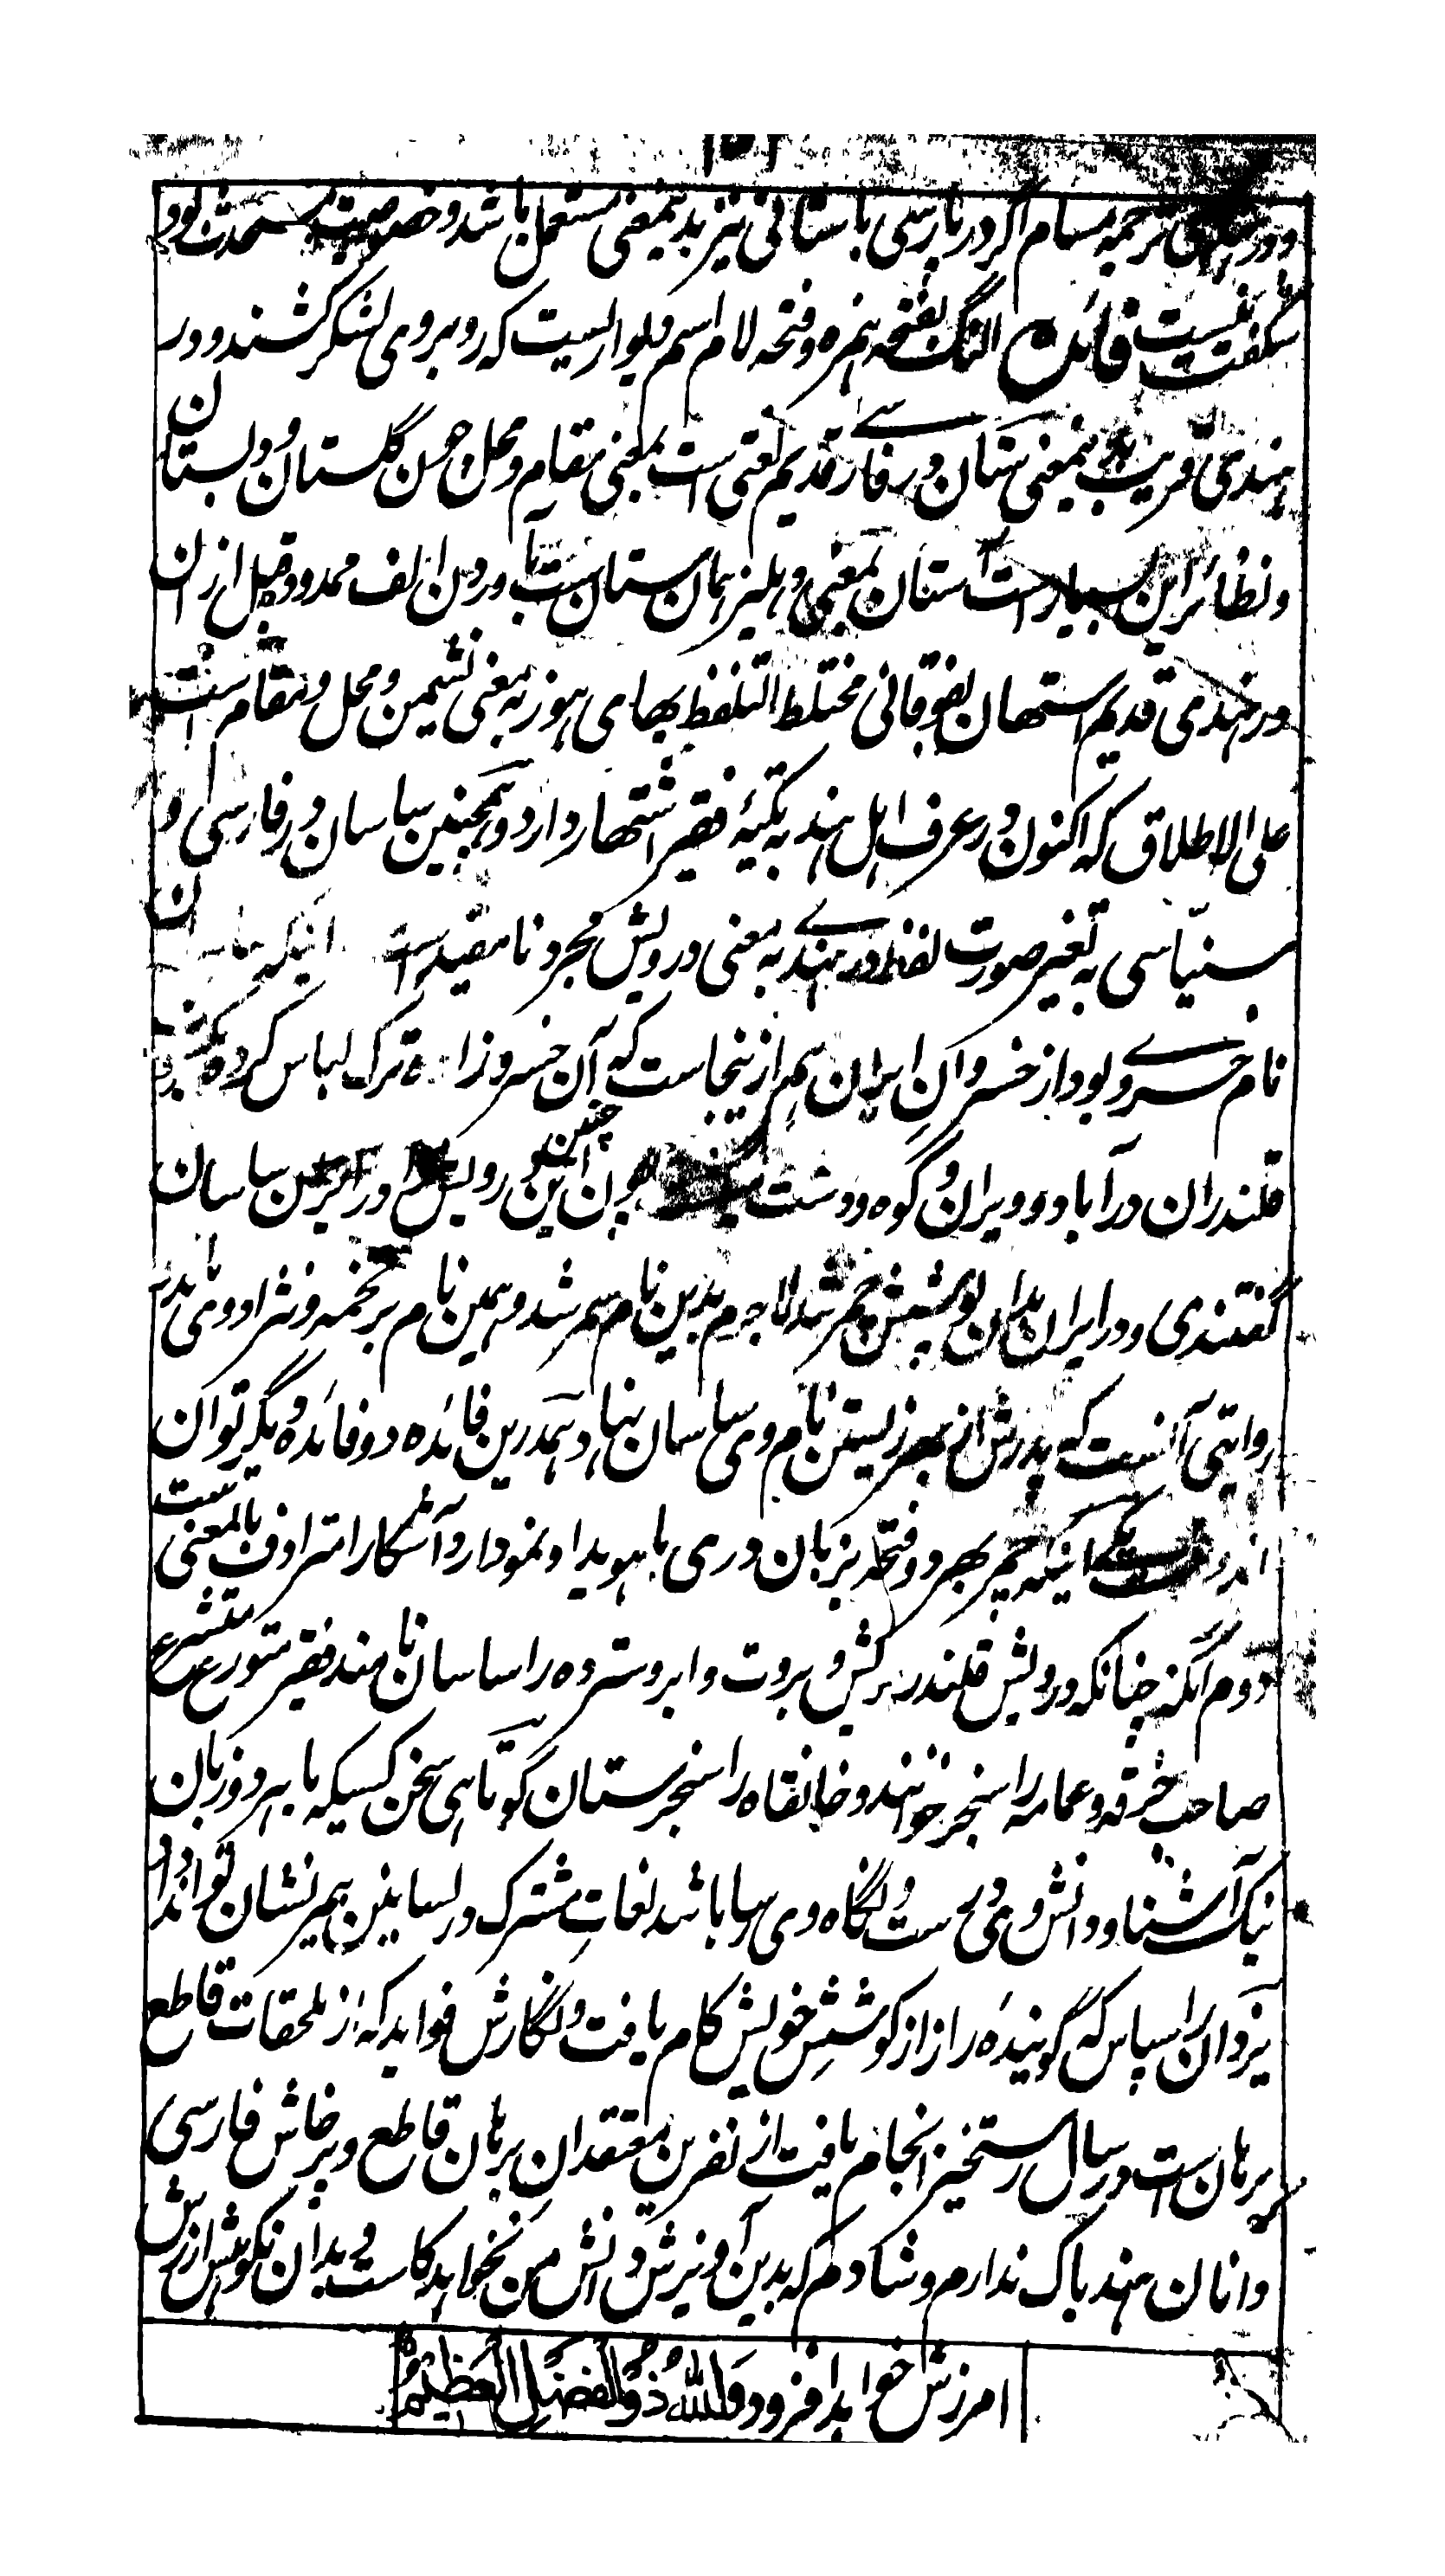 ترجمه مسام اگر در پارسی باستانی نیز بدینمعنی مستعمل باشد و خصوصیت بود
شگفت نیست فائده النگ بفتحه همزه و فتحه لام اسم دیواریست که روبروی لشکر کشند و در
هندی قریب بدینمعنی ستان در فارسے قدیم لغتی است بمعنی مقام و محل چون گلستان و بستان
و نظائر این بسیارست آستان بمعنی دهلیز همان ستان ست بآوردن الف ممدوده قبل از ان
در هندی قدیم استهان بفوقانی مختلط التلفظ بهای هوز به معنی نشیمن و محل و مقام ست
علی الاطلاق که اکنون در عرف اهل هند به تکیهٔ فقیر اشتهار دارد و همچنین ساسان در فارسی و
سنیّاسی به تغیر صورت لفظ در هندے به معنی درویش مجرد نامقید است اینکه ساسان
نام خسروے بود از خسروان ایران هم ازینجاست که آن خسروزاده ترک لباس کرده
قلندران در آباد و ویران و کوه و دشت چون این چنین درویش را در ایران ساسان
گفتندی و در ایران بدان پوشش چم شد لاجرم بدین نام سمر شد و همین نام بر تخمه و نژاد وی ماند
روایتی آنست که پدرش از بهر زیستن نام وی ساسان نهاد همدرین فائده دو فائده دیگر توان
اندوخت یکی اینکه چمر بهر دو فتحه بزبان دری با هویدا و نمودار و آشکارا مترادف بالمعنی ست
دوم آنکه چنانکه درویش قلندر ریش و بروت و ابرو سترده را ساسان نامند فقیر متورع متشرع
صاحب خرقه و عمامه را سنجر خوانند و خانقاه را سنجرستان کوتاهی سخن کسیکه با هر دو زبان
نیک آشنا و دانش وی درست و نگاه وی رسا باشد لغات مشترک در لسانین بهم نشان تواند داد
یزدان را سپاس که گوینده راز از کوشش خویش کام یافت و نگارش فواید که از ملحقات قاطع
برهان ست در سال رستخیز انجام یافت از نفرین معتقدان برهان قاطع و پرخاش فارسی
دانان هند باک ندارم و شادم که بدین آویزش دانش من نخواهد کاست و بدان نکوهش ارزش
امرزش خواهد افزود وَاللهُ ذُوالفَضلِ العَظِیمِ